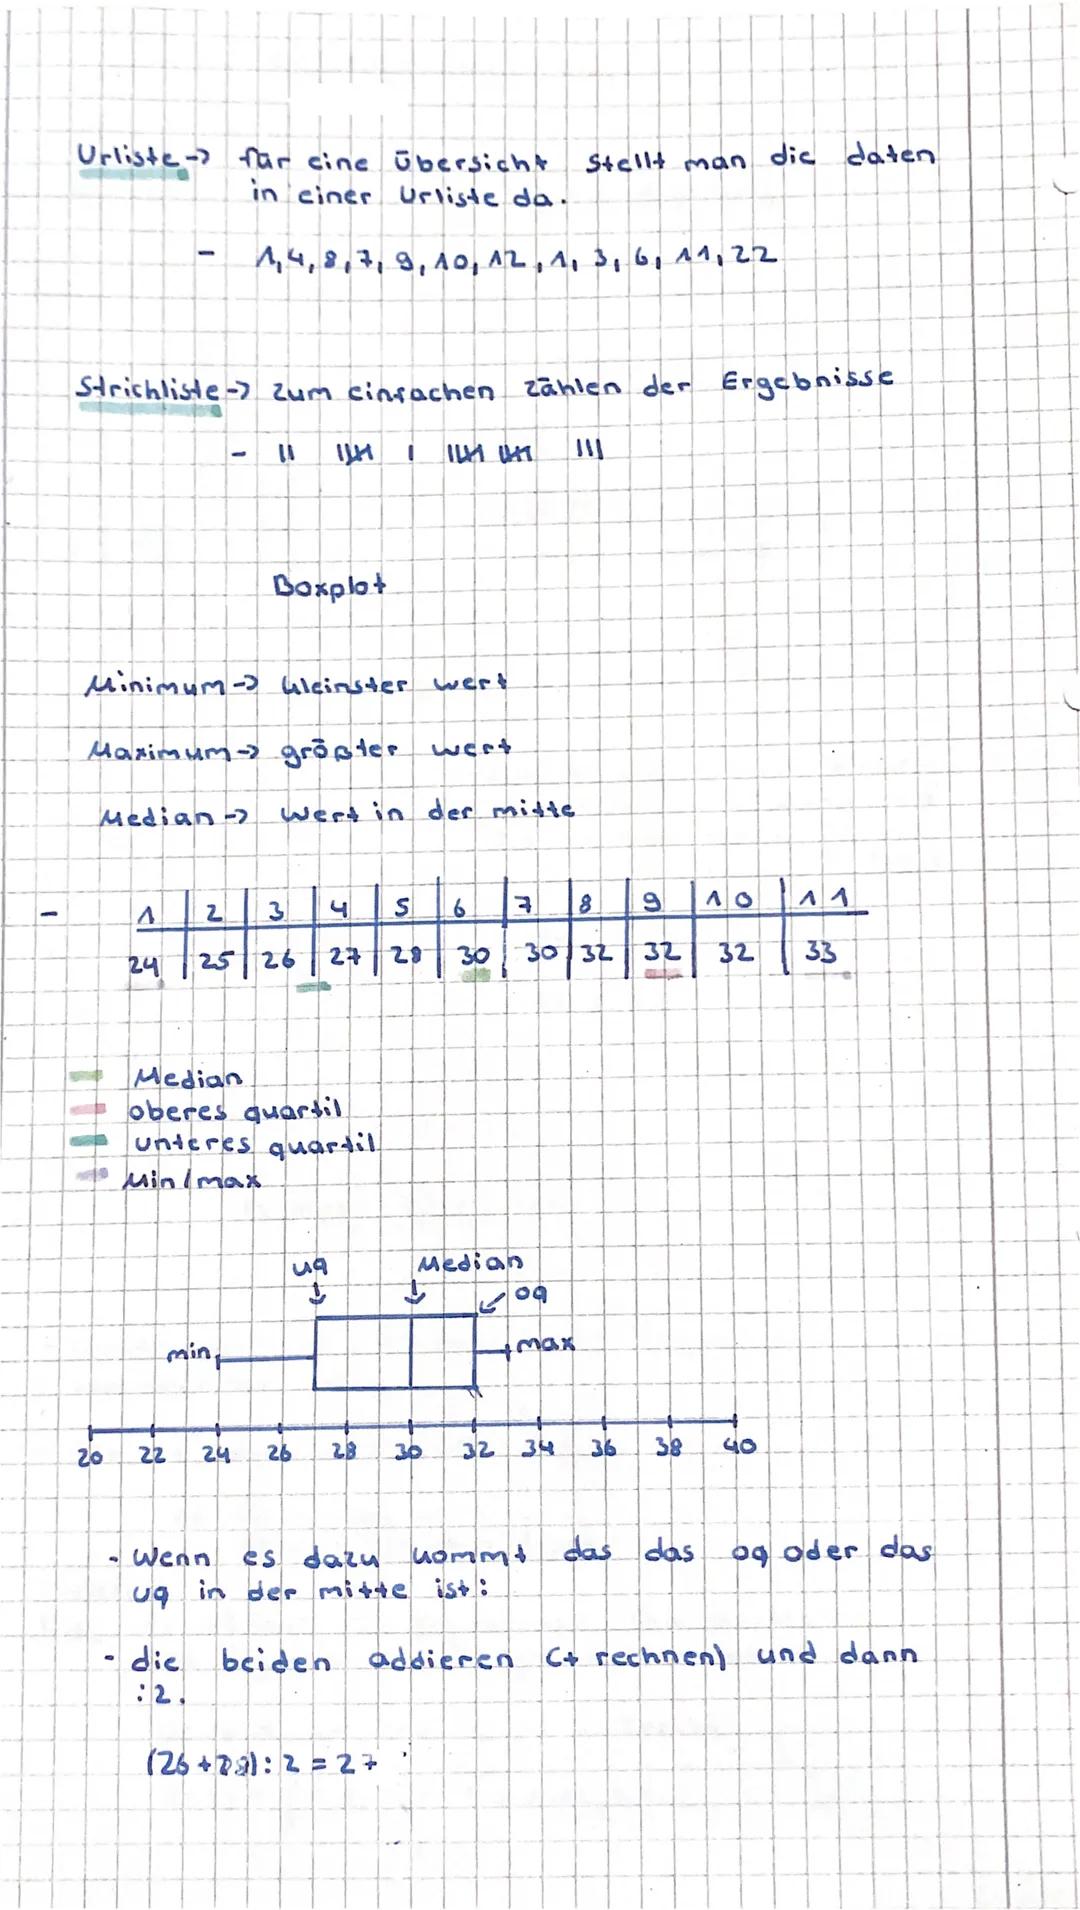 Urliste -> für eine Übersicht stellt man die daten
in einer Urliste da.
- 1, 4, 8, 7, 9, 10, 12, 1, 3, 6, 11, 22
Strichliste -> zum einfachen zählen der Ergebnisse
- || |||| | |||| |||| |||
Boxplot
Minimum -> kleinster wert
Maximum -> größter wert
Median -> wert in der mitte
- 1 | 2 | 3 | 4 | 5 | 6 | 7 | 8 | 9 | 10 | 11
24 | 25 | 26 | 27 | 28 | 30 | 30 | 32 | 32 | 32 | 33
Median
oberes quartil
unteres quartil
Min/max
uq Median
oq
min max
20 22 24 26 28 30 32 34 36 38 40
- Wenn es dazu kommt das das oq oder das
uq in der mitte ist:
- die beiden addieren (+ rechnen) und dann
:2.
(26+28):2=27